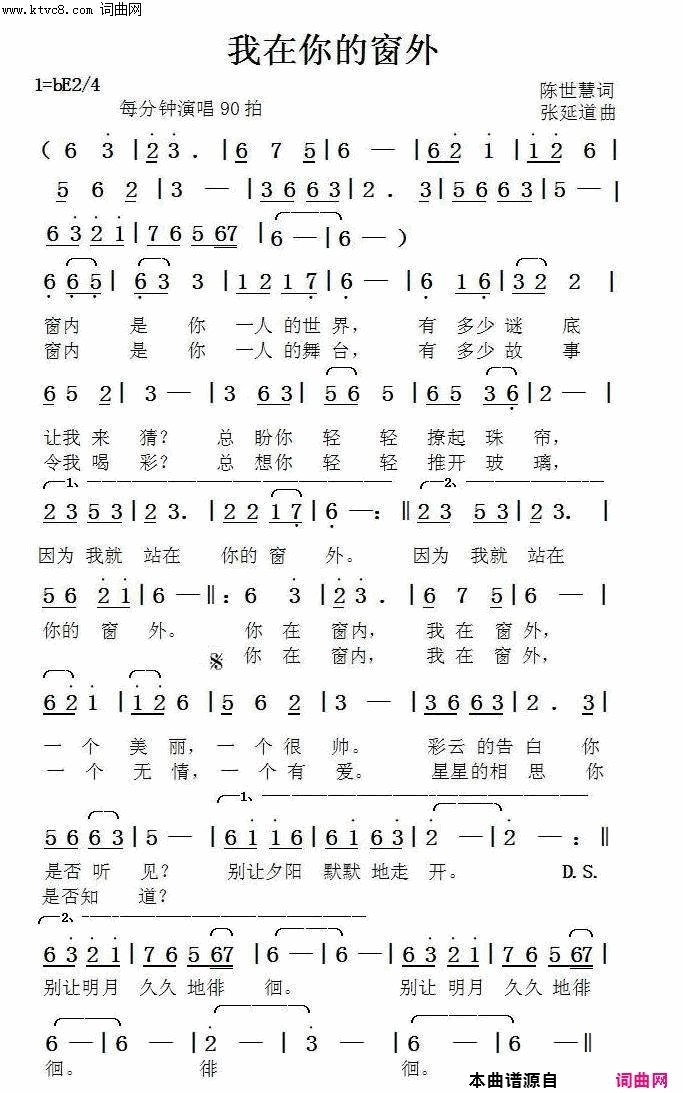 www.ktvc8.com 词曲网
我在你的窗外
1=bE2/4
陈世慧词
每分钟演唱90拍
张延道曲
( 6 3 | 2 3 . | 6 7 5 | 6 — | 6 2 1 | 1 2 6 |
5 6 2 | 3 — | 3 6 6 3 | 2 . 3 | 5 6 6 3 | 5 — |
6 3 2 1 | 7 6 5 67 | 6 — | 6 — )
6 6 5 | 6 3 3 | 1 2 1 7 | 6 — | 6 1 6 | 3 2 2 |
窗内 是 你 一人 的世 界, 有 多少 谜 底
窗内 是 你 一人 的舞 台, 有 多少 故 事
6 5 2 | 3 — | 3 6 3 | 5 6 5 | 6 5 3 6 | 2 — |
让我 来 猜? 总 盼你 轻 轻 撩起 珠 帘,
令我 喝 彩? 总 想你 轻 轻 推开 玻 璃,
1、 2、
2 3 5 3 | 2 3. | 2 2 1 7 | 6 — : ‖ 2 3 5 3 | 2 3. |
因为 我就 站在 你的 窗 外。 因为 我就 站在
5 6 2 1 | 6 — ‖: 6 3 | 2 3 . | 6 7 5 | 6 — |
你的 窗 外。 你 在 窗内, 我 在 窗 外,
你 在 窗内, 我 在 窗 外,
6 2 1 | 1 2 6 | 5 6 2 | 3 — | 3 6 6 3 | 2. 3 |
一 个 美 丽, 一 个 很 帅。 彩云 的告 白 你
一 个 无 情, 一 个 有 爱。 星星 的相 思 你
1、
5 6 6 3 | 5 — | 6 1 1 6 | 6 1 6 3 | 2 — | 2 — : ‖
是否 听 见? 别让夕阳 默默 地走 开。 D.S.
是否知 道?
2、
6 3 2 1 | 7 6 5 67 | 6 — | 6 — | 6 3 2 1 | 7 6 5 67 |
别让明月 久久 地徘 徊。 别让 明月 久久 地徘
6 — | 6 — | 2 — | 3 — | 6 — | 6 — ‖
徊。 徘 徊。
本曲谱源自 词曲网